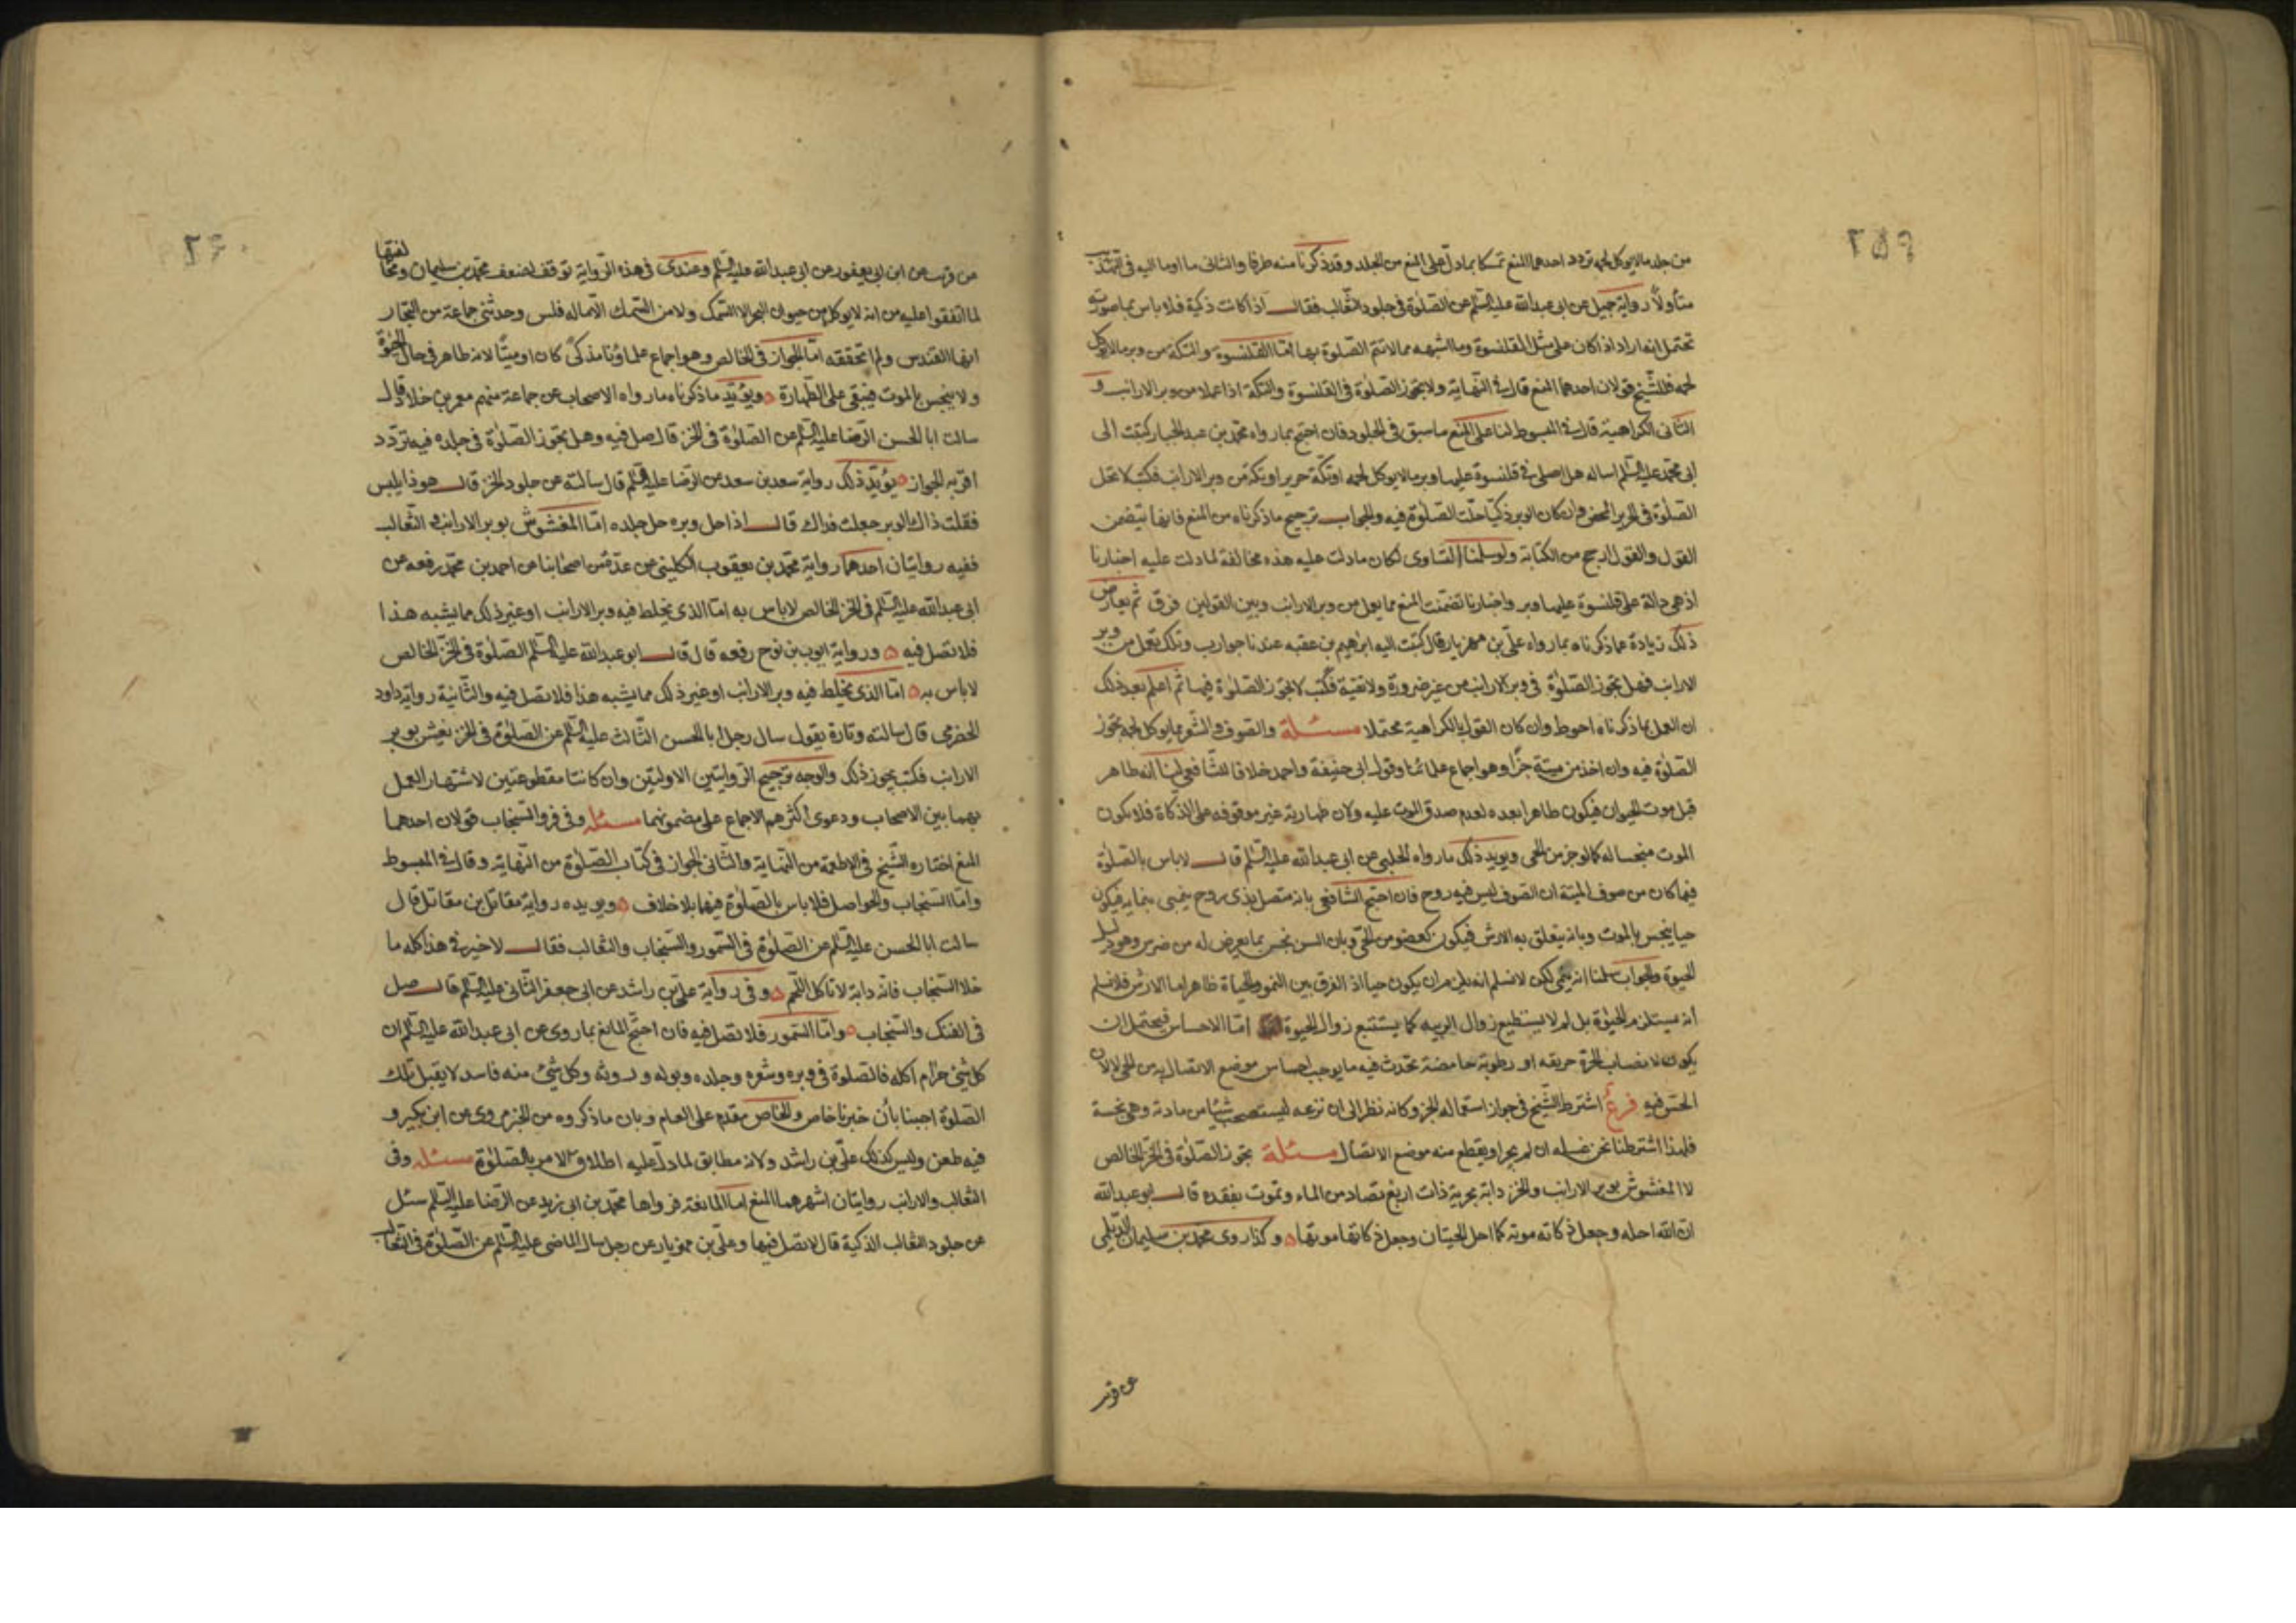 ٢۵٩
من جلد مالايوكل لحمه تردد احدهما المنع تمسكا بمادل على المنع من الجلد وقد ذكرنا منه طرفا والثانى ما اوما اليه فى
متأولا رواية جميل عن ابى عبدالله عليه السلم عن الصلوة فى جلود الثعالب فقال اذا كانت ذكية فلا باس بما صورته
تحتمل انه اراد اذا كان على مثل القلنسوة وما اشبهه مما لاتتم الصلوة بها اما القلنسوة والتكة من وبر مالايوكل
لحمه فللشيخ قولان احدهما المنع قال فى النهاية ولا يجوز الصلوة فى القلنسوة والتكة اذا عملا من وبر الارانب و
الثانى الكراهية قال فى المبسوط لنا على المنع ماسبق فى الجلود فان احتج بمارواه محمد بن عبد الجبار كتبت الى
ابى محمد عليه السلم اساله هل اصلى فى قلنسوة عليها وبر مالايوكل لحمه او تكة حرير او تكة من وبر الارانب فكتب لاتحل
الصلوة فى الحرير المحض وان كان الوبر ذكيا حلت الصلوة فيه والجواب ترجيح ماذكرناه من المنع فانها تتضمن
القول والقول ارجح من الكتابة ولو سلمنا التساوى لكان مادلت عليه هذه مخالفة لمادلت عليه اخبارنا
اذ هى دالة على قلنسوة عليها وبر واخبارنا تضمنت المنع مما يعمل من وبر الارانب وبين القولين فرق ثم يعارض
ذلك زيادة عماذكرناه بمارواه على بن مهزيار قال كتبت اليه ابرهيم بن عقبه عندنا جوارب وتكك تعمل من وبر
الارانب فهل يجوز الصلوة فى وبر الارانب من غير ضرورة ولا تقية فكتب لايجوز الصلوة فيها ثم اعلم بعد ذلك
ان العمل بماذكرناه احوط وان كان القول بالكراهية محتملا مسئلة والصوف والشعر مما يوكل لحمه تجوز
الصلوة فيه وان اخذ من ميتة جزا وهو اجماع علمائنا وقول ابى حنيفة واحمد خلافا للشافعى لنا انه طاهر
قبل موت الحيوان فيكون طاهرا بعده لعدم صدق الموت عليه ولان طهارته غير موقوفه على الذكاة فلا يكون
الموت منجسا له كما لو جز من الحى ويويد ذلك مارواه الحلبى عن ابى عبدالله عليه السلم قال لاباس بالصلوة
فيما كان من صوف الميتة ان الصوف ليس فيه روح فان احتج الشافعى بانه متصل بذى روح ينمى بنمايه فيكون
حيا ينجس بالموت وبانه يتعلق به الارش فيكون كعضو من الحى وبان السن نحس بما يعرض له من ضرس وهو دليل
الحيوة والجواب سلمنا انه ينمى لكن لانسلم انه يلزم ان يكون حيا اذ الفرق بين النمو والحياة ظاهر اما الارش فلانسلم
انه يستلزم الحيوة بل لم لا يستطيع زوال الريبه كما يستتبع زوال الحيوة اما الاحساس فيحتمل ان
يكون لانصباب الحرة حريقه او رطوبة حامضة تحدث فيه مايوجب احساس موضع الاتصال به من الحى لا لان
الحس فيه فرع اشترط الشيخ فى جواز استعماله الجز وكانه نظر الى ان نزعه ليستصحب شيئا من مادته وهى نجسة
فلهذا اشترطنا نحن غسله ان لم يجز او يقطع منه موضع الاتصال مسئلة تجوز الصلوة فى الخز الخالص
لا المغشوش بوبر الارانب والخز دابة بحرية ذات اربع تصاد من الماء وتموت بفقده قال ابو عبدالله
ان الله احله وجعل ذكاته موته كما احل الحيتان وجعل ذكاتها موتها وكذا روى محمد بن سليمان الديلمى
عن قريب
٢۶٠
من قريب عن ابن ابى يعفور عن ابى عبدالله عليه السلم وعندى فى هذه الرواية توقف لضعف محمد بن سليمان ومخالفتها
لما اتفقوا عليه من انه لايوكل من حيوان البحر الا السمك ولا من السمك الا ماله فلس وحدثنى جماعة من التجار
انها القندس ولم اتحققه اما الجواز فى الخالص وهو اجماع علماؤنا مذكى كان او ميتا لانه طاهر فى حال الحيوة
ولاينجس بالموت فيبقى على الطهارة ويؤيد ماذكرناه مارواه الاصحاب عن جماعة منهم معمر بن خلاد قال
سالت ابا الحسن الرضا عليه السلم عن الصلوة فى الخز قال صل فيه وهل تجوز الصلوة فى جلده فيه تردد
اقربه الجواز يؤيد ذلك رواية سعد بن سعد عن الرضا عليه السلم قال سالته عن جلود الخز قال هوذا يلبس
فقلت ذاك الوبر جعلت فداك قال اذا حل وبره حل جلده اما المغشوش بوبر الارانب والثعالب
ففيه روايتان احدهما رواية محمد بن يعقوب الكلينى عن عدة من اصحابنا عن احمد بن محمد رفعه عن
ابى عبدالله عليه السلم فى الخز الخالص لاباس به اما الذى يخلط فيه وبر الارانب او غير ذلك مما يشبه هذا
فلا تصل فيه ورواية ايوب بن نوح رفعه قال قال ابو عبدالله عليه السلم الصلوة فى الخز الخالص
لاباس به اما الذى يخلط فيه وبر الارانب او غير ذلك مما يشبه هذا فلا تصل فيه والثانية رواية داود
الحضرمى قال سالته وتارة يقول سال رجل ابا الحسن الثالث عليه السلم عن الصلوة فى الخز يغش بوبر
الارانب فكتب يجوز ذلك والوجه ترجيح الروايتين الاوليتين وان كانتا مقطوعتين لاشتهار العمل
بهما بين الاصحاب ودعوى اكثرهم الاجماع على مضمونهما مسئله وفى فرو السنجاب قولان احدهما
المنع اختاره الشيخ فى الاطعمة من النهاية والثانى الجواز فى كتاب الصلوة من النهاية وقال فى المبسوط
واما السنجاب والحواصل فلا باس بالصلوة فيهما بلا خلاف ويويده رواية مقاتل بن مقاتل قال
سالت ابا الحسن عليه السلم عن الصلوة فى السمور والسنجاب والثعالب فقال لاخير فى هذا كله ما
خلا السنجاب فانه دابة لاتاكل اللحم وفى رواية على بن راشد عن ابى جعفر الثانى عليه السلم قال صل
فى الفنك والسنجاب واما السمور فلا تصل فيه فان احتج المانع بماروى عن ابى عبدالله عليه السلم ان
كل شئ حرام اكله فالصلوة فى وبره وشعره وجلده وبوله وروثه وكل شئ منه فاسد لايقبل تلك
الصلوة اجبنا بأن خبرنا خاص والخاص مقدم على العام وبان ماذكروه من الخبر مروى عن ابن بكير و
فيه طعن وليس كذلك على بن راشد ولانه مطابق لمادل عليه اطلاق الامر بالصلوة مسئله وفى
الثعالب والارانب روايتان اشهرهما المنع اما المانعة فرواها محمد بن ابى زيد عن الرضا عليه السلم سئل
عن جلود الثعالب الذكية قال لاتصل فيها وعلى بن مهزيار عن رجل سال الماضى عليه السلم عن الصلوة فى الثعالب